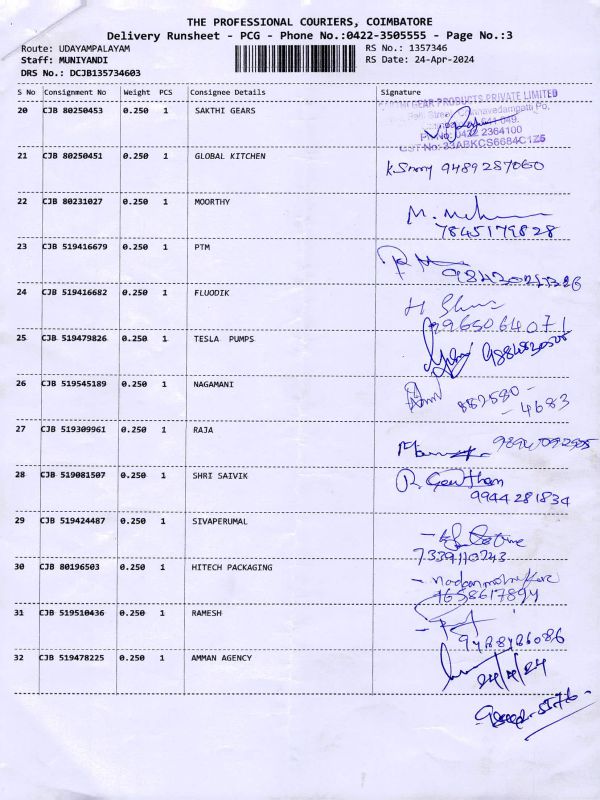 THE PROFESSIONAL COURIERS, COIMBATORE
Delivery Runsheet - PCG - Phone No.:0422-3505555 - Page No.:3
Route: UDAYAMPALAYAM RS No.: 1357346
Staff: MUNIYANDI RS Date: 24-Apr-2024
DRS No.: DCJB135734603
S No Consignment No Weight PCS Consignee Details Signature
20 CJB 80250453 0.250 1 SAKTHI GEARS
GEAR PRODUCTS PRIVATE LIMITED
641 049.
0422 2364100
No: 33ABKCS6684C1Z5
21 CJB 80250451 0.250 1 GLOBAL KITCHEN 9489287060
22 CJB 80231027 0.250 1 MOORTHY
7845179828
23 CJB 519416679 0.250 1 PTM
24 CJB 519416682 0.250 1 FLUODIK
9965064071
25 CJB 519479826 0.250 1 TESLA PUMPS
26 CJB 519545189 0.250 1 NAGAMANI
882580 -
- 4683
27 CJB 519309961 0.250 1 RAJA
28 CJB 519081507 0.250 1 SHRI SAIVIK R. Gowtham
9944281834
29 CJB 519424487 0.250 1 SIVAPERUMAL
7339110243
30 CJB 80196503 0.250 1 HITECH PACKAGING
31 CJB 519510436 0.250 1 RAMESH
32 CJB 519478225 0.250 1 AMMAN AGENCY
24/4/24